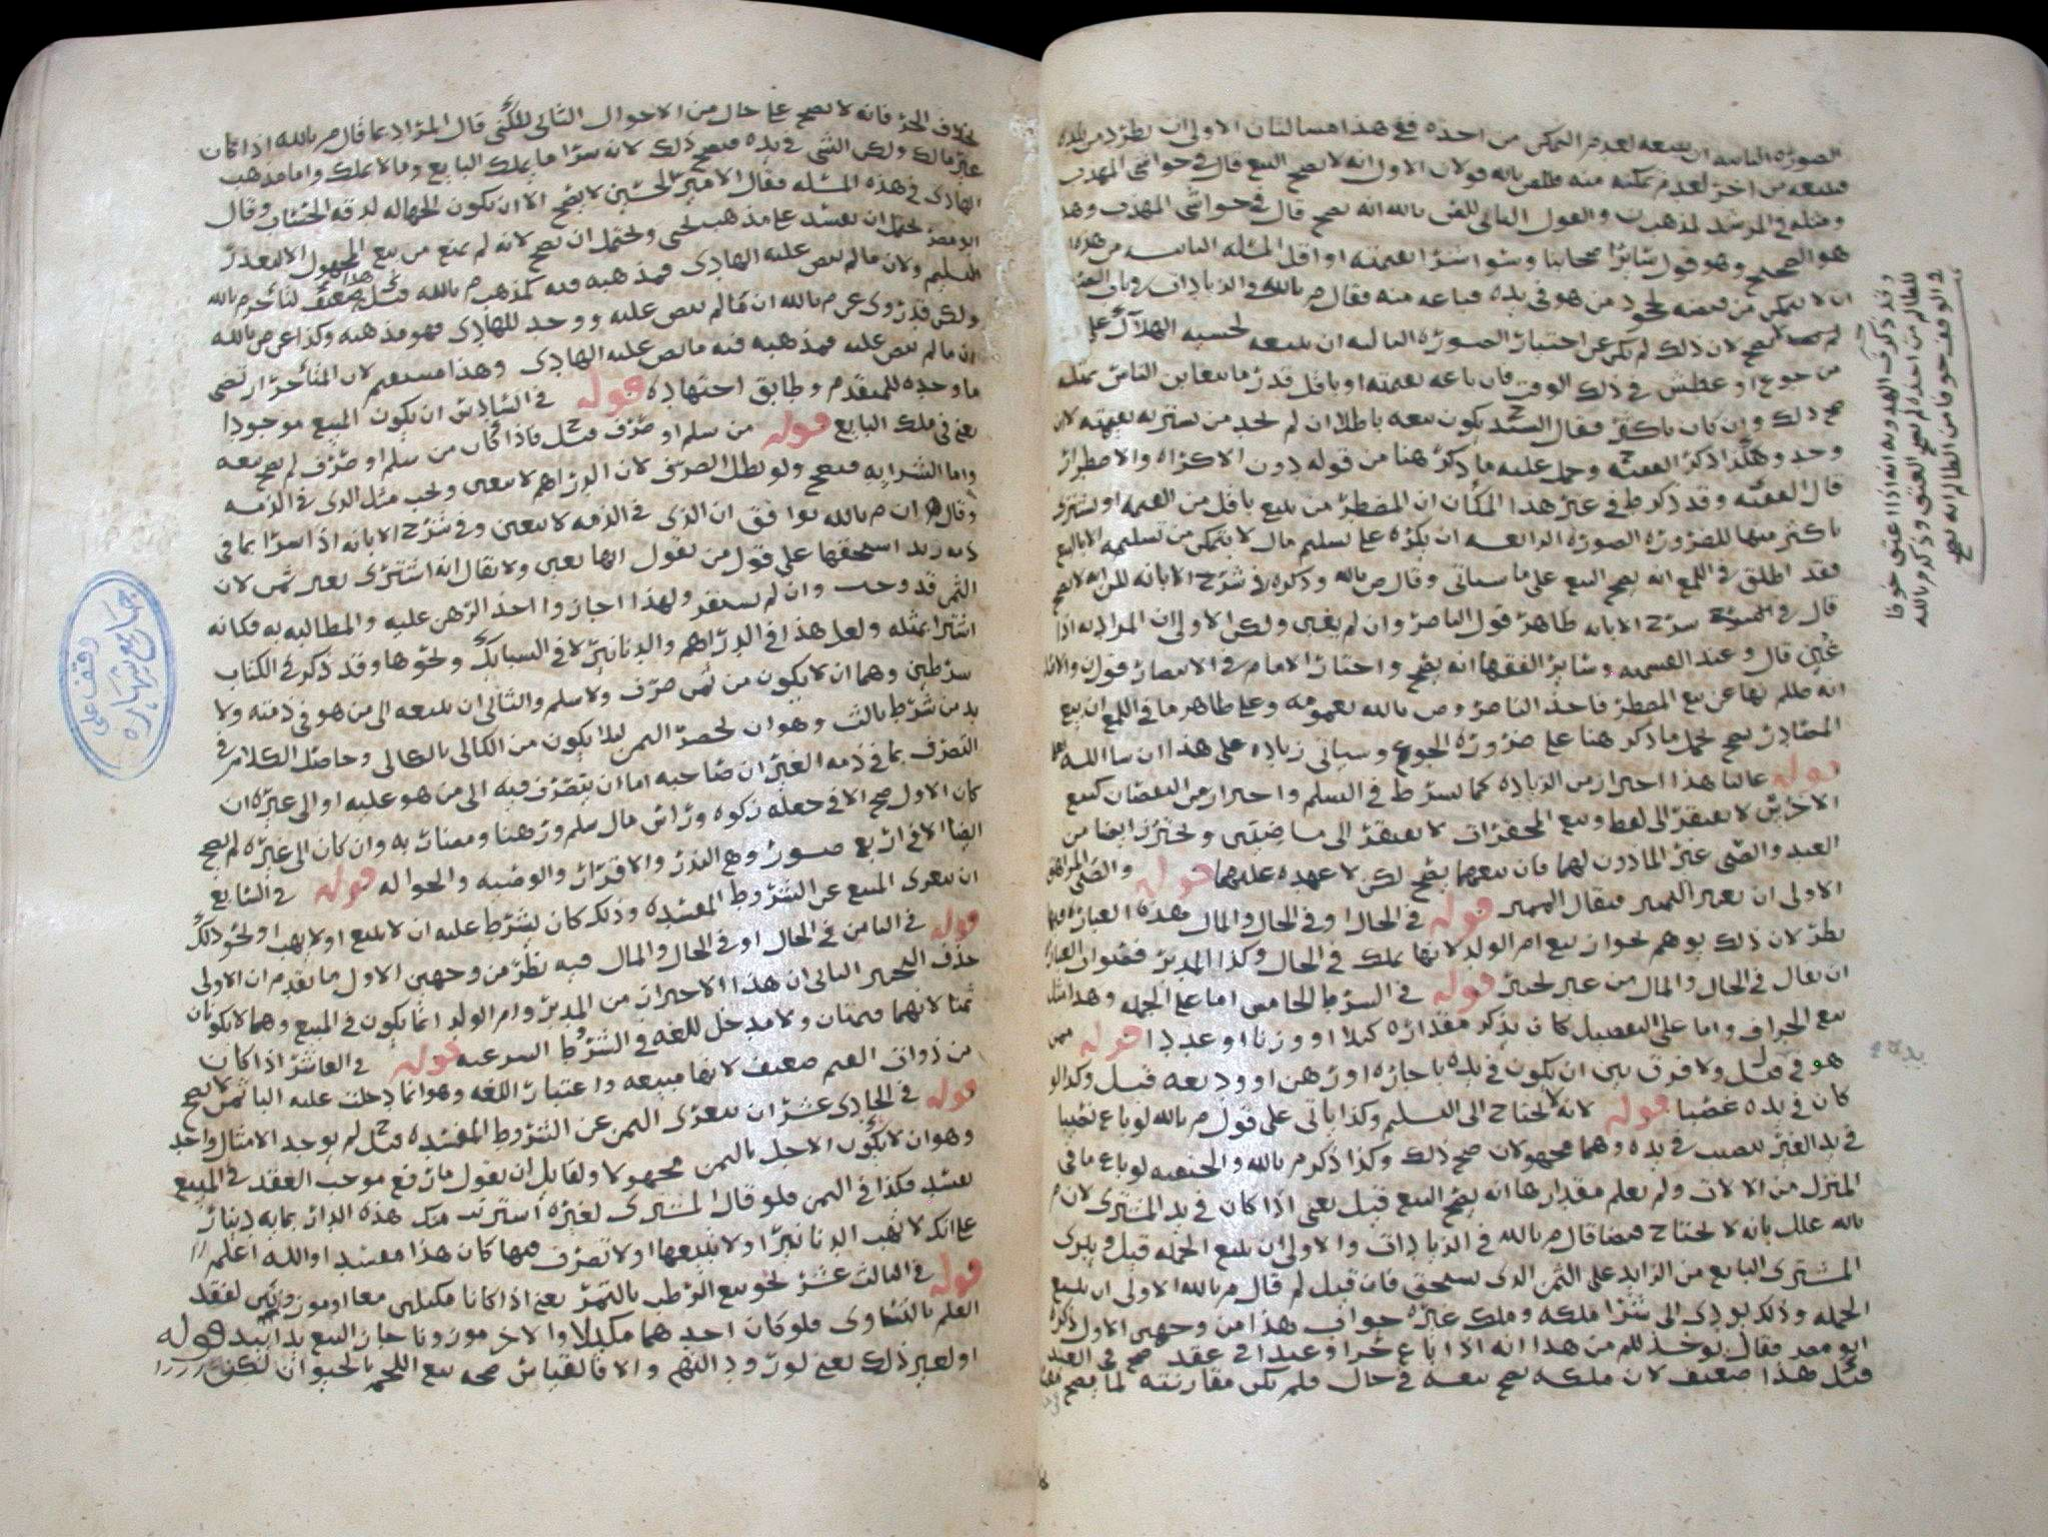 الصورة الثانية ان يبيعه لعدم التمكن من اخذه ففي هذا مسالتان الاولى ان يطرد من بلده
فيبيعه من اخر لعدم تمكنه منه فللم بالله قولان الاول انه لا يصح البيع قال في حواشي المهذب
ومثله في المرشد لمذهب ن والقول الثاني للم بالله انه يصح قال في حواشي المهذب وهذا
هو الصحيح وهو قول سائر اصحابنا وسوا شرا بقيمته او اقل المسئله الثانية من هذه
ان لا يتمكن من قبضه لجحود من هو في يده فباعه منه فقال م بالله في الزيادات
يصح لان ذلك لم يكن عن اختيار الصورة الثالثة ان يبيعه لخشية الهلاك على
من جوع او عطش في ذلك الوقت فان باعه بقيمته او باقل قدر ما يتغابن الناس بمثله
صح ذلك وان كان باكثر فقال السيد ح يكون بيعه باطلا ان لم يجد من يشتريه بقيمته لان
وجد وهكذا ذكر الفقيه وحمل عليه ما ذكر هنا من قوله دون الاكراه والاضطرار
قال الفقيه وقد ذكر ط في غير هذا المكان ان المضطر من يبيع باقل من القيمة او يشتري
باكثر منها للضرورة الصورة الرابعة ان يكره على تسليم مال لا يتمكن من تسليمه الا بالبيع
فقد اطلق في اللمع انه يصح البيع على ما سياتي وقال م بالله وذكره في شرح الابانة للن انه لا يصح
قال في شرح الابانة ظاهر قول الناصر وان لم يغبن ولكن الاولى ان المراد به اذا
غبن قال وعند القسمية وسائر الفقها انه يصح واختار الامام في الانتصار قول ن والاثار
انه صلم نها عن بيع المضطر فاخذ الناصر وص بالله بعمومه وعلى ظاهر ما في اللمع ان بيع
المصادر يصح يحمل ما ذكر هنا على ضرورة الجوع وسياتي زيادة على هذا ان شا الله تعالى
قوله غالبا هذا احتراز من الزيادة كما يشرط في السلم واحتراز من النقصان كبيع
الاخرس لا يفتقر الى لفظ وبيع المحقرات لا يفتقر الى ماضيين ويحترز ايضا من
العبد والصبي غير الماذون لهما فان بيعهما يصح لكن لا عهدة عليهما قوله والصبي المراهق
الاولى ان يعبر المميز فيقال المميز قوله في الحال او في الحال والمال وهذه العبارة فيها
نظر لان ذلك يوهم بجواز بيع ام الولد لانها تملك في الحال وكذا المدبر فيقول ان العبارة
ان يقال في الحال والمال من غير تخيير قوله في الشرط الخامس اما على الجملة وهذا مثل
بيع الجزاف واما على التفصيل كان يذكر مقداره كيلا او وزنا او عددا قوله ممن
هو في قيل ولا فرق بين ان يكون في يده باجارة او رهن او وديعة قيل وكذا لو
كان في يده غصبا قوله لانه لا يحتاج الى التسليم وكذا ياتي على قول م بالله لو باع نصيبا
في يد الغير بنصيب في يده وهما مجهولان صح ذلك وكذا ذكر م بالله والحنفية لو باع ما في
المنزل من الالات ولم يعلم مقدارها انه يصح البيع قيل يعني اذا كان في يد المشتري لان م
بالله علل بانه لا يحتاج قبضا قال م بالله في الزيادات والاولى ان يبيع الجملة قيل ويبري
المشتري البايع من الزايد على الثمن الذي يستحق فان قيل لم قال م بالله الاولى ان يبيع
الجملة وذلك يودي الى شرا ملكه وملك غيره جواب هذا من وجهين الاول ذكره
ابو مضر فقال يوخذ للم من هذا انه اذا باع حرا وعبدا في عقد صح في العبد
قيل هذا ضعيف لان ملكه يصح بيعه في حال فلم تكن مقارنته لما يصح
وقد ذكر في الهدوية انه اذا اعتق خوفا
للظالم من اخذه لم يصح العتق وذكر م بالله
في الوقف خوفا من الظالم انه يصح
بخلاف الحر فانه لا يصح على حال من الاحوال الثاني للكني قال المراد بما قال م بالله اذا كان
غير مالك ولكن الشي في يده فيصح ذلك لانه شرا ما يملك البايع وما لا يملك واما مذهب
الهادي في هذه المسئله فقال الامير الحسين لا يصح الا ان يكون الجهالة لدقة الحساب وقال
ابو مضر يحتمل ان يفسد على مذهب يحيى ويحتمل ان يصح لانه لم يمنع من بيع المجهول الا لتعذر
التسليم ولان ما لم ينص عليه الهادي فمذهبه فيه كمذهب م بالله قيل هذا ضعيف لتاخر م بالله
ولكن قد روي عن م بالله ان ما لم ينص عليه ووجد للهادي فهو مذهبه وكذا عن ص بالله
ان ما لم ينص عليه فمذهبه فيه ما نص عليه الهادي وهذا مستقيم لان المتاخر ارتضى
ما وجده للمتقدم وطابق اجتهاده قوله في السادس ان يكون المبيع موجودا
يعني في ملك البايع قوله من سلم او صرف قيل فاذا كان من سلم او صرف لم يصح بيعه
واما الشرا به فيصح ولو بطل الصرف لان الدراهم لا تتعين ويجب مثل الذي في الذمه
وقال ان م بالله يوافق ان الذي في الذمه لا يتعين وفي شرح الابانة اذا اشترا بما في
ذمة زيد استحقها على قول من يقول انها تعين ولا يقال انه اشترى بغير ثمن لان
الثمن قد وجب وان لم يستقر ولهذا اجازوا اخذ الرهن عليه والمطالبة به فكانه
اشترا بمثله ولعل هذا في الدراهم والدنانير لا في السبايك ونحوها وقد ذكر في الكتاب
شرطين وهما ان لا يكون من ثمن صرف ولا سلم والثاني ان يبيعه الى من هو في ذمته ولا
بد من شرط ثالث وهو ان يحضر الثمن ليلا يكون من الكالي بالكالي وحاصل الكلام في
التصرف بما في ذمة الغير ان صاحبه اما ان يتصرف فيه الى من هو عليه او الى غيره ان
كان الاول صح الا في جعله زكوة وراس مال سلم ورهنا ومضاربة وان كان الى غيره لم يصح
ايضا الا في اربع صور وهي النذر والاقرار والوصية والحوالة قوله في السابع
ان يعرى المبيع عن الشروط المفسدة وذلك كان يشرط عليه ان لا يبيع او لا يهب او نحو ذلك
قوله في الثامن في الحال او في الحال والمال فيه نظر من وجهين الاول ما تقدم ان الاولى
حذف التخيير الثاني ان هذا الاحتراز من المدبر وام الولد انما يكون في المبيع وهما لا يكونان
ثمنا لانهما قيمتان ولا مدخل للغة في الشروط الشرعية قوله في العاشر اذا كان
من ذوات القيم ضعيف لانها مبيعة واعتبار اللغة وهو انما دخلت عليه البا ثمن لا يصح
قوله في الحادي عشر ان يتعرى الثمن عن الشروط المفسدة قيل لم يوجد الامثال واحد
وهو ان لا يكون الاجل بالثمن مجهولا ولقايل ان يقول ما رفع موجب العقد في المبيع
يفسد فكذا في الثمن فلو قال المشتري لغيره اشتريت منك هذه الدار بماية دينار
على انك لا تهب الدنانير او لا تبيعها او لا تصرف فيها كان هذا مفسدا والله اعلم
قوله في الثالث عشر نحو بيع الرطب بالتمر يعني اذا كانا مكيلين معا او موزونين لفقد
العلم بالتساوي فلو كان احدهما مكيلا والاخر موزونا جاز البيع يدا بيد قوله
او لغير ذلك يعني لورود النهي والا فالقياس صحة بيع اللحم بالحيوان لكن
وقف على
جامع شهاره